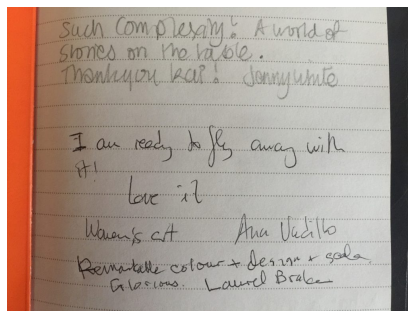 Such Complexity! A world of
stories on the table.
Thankyou Kai! Jenny White
I am ready to fly away with
it!
Love it
Women's art Ana Vadillo
Remarkable colour + design + scale
Glorious. Laurel Brake